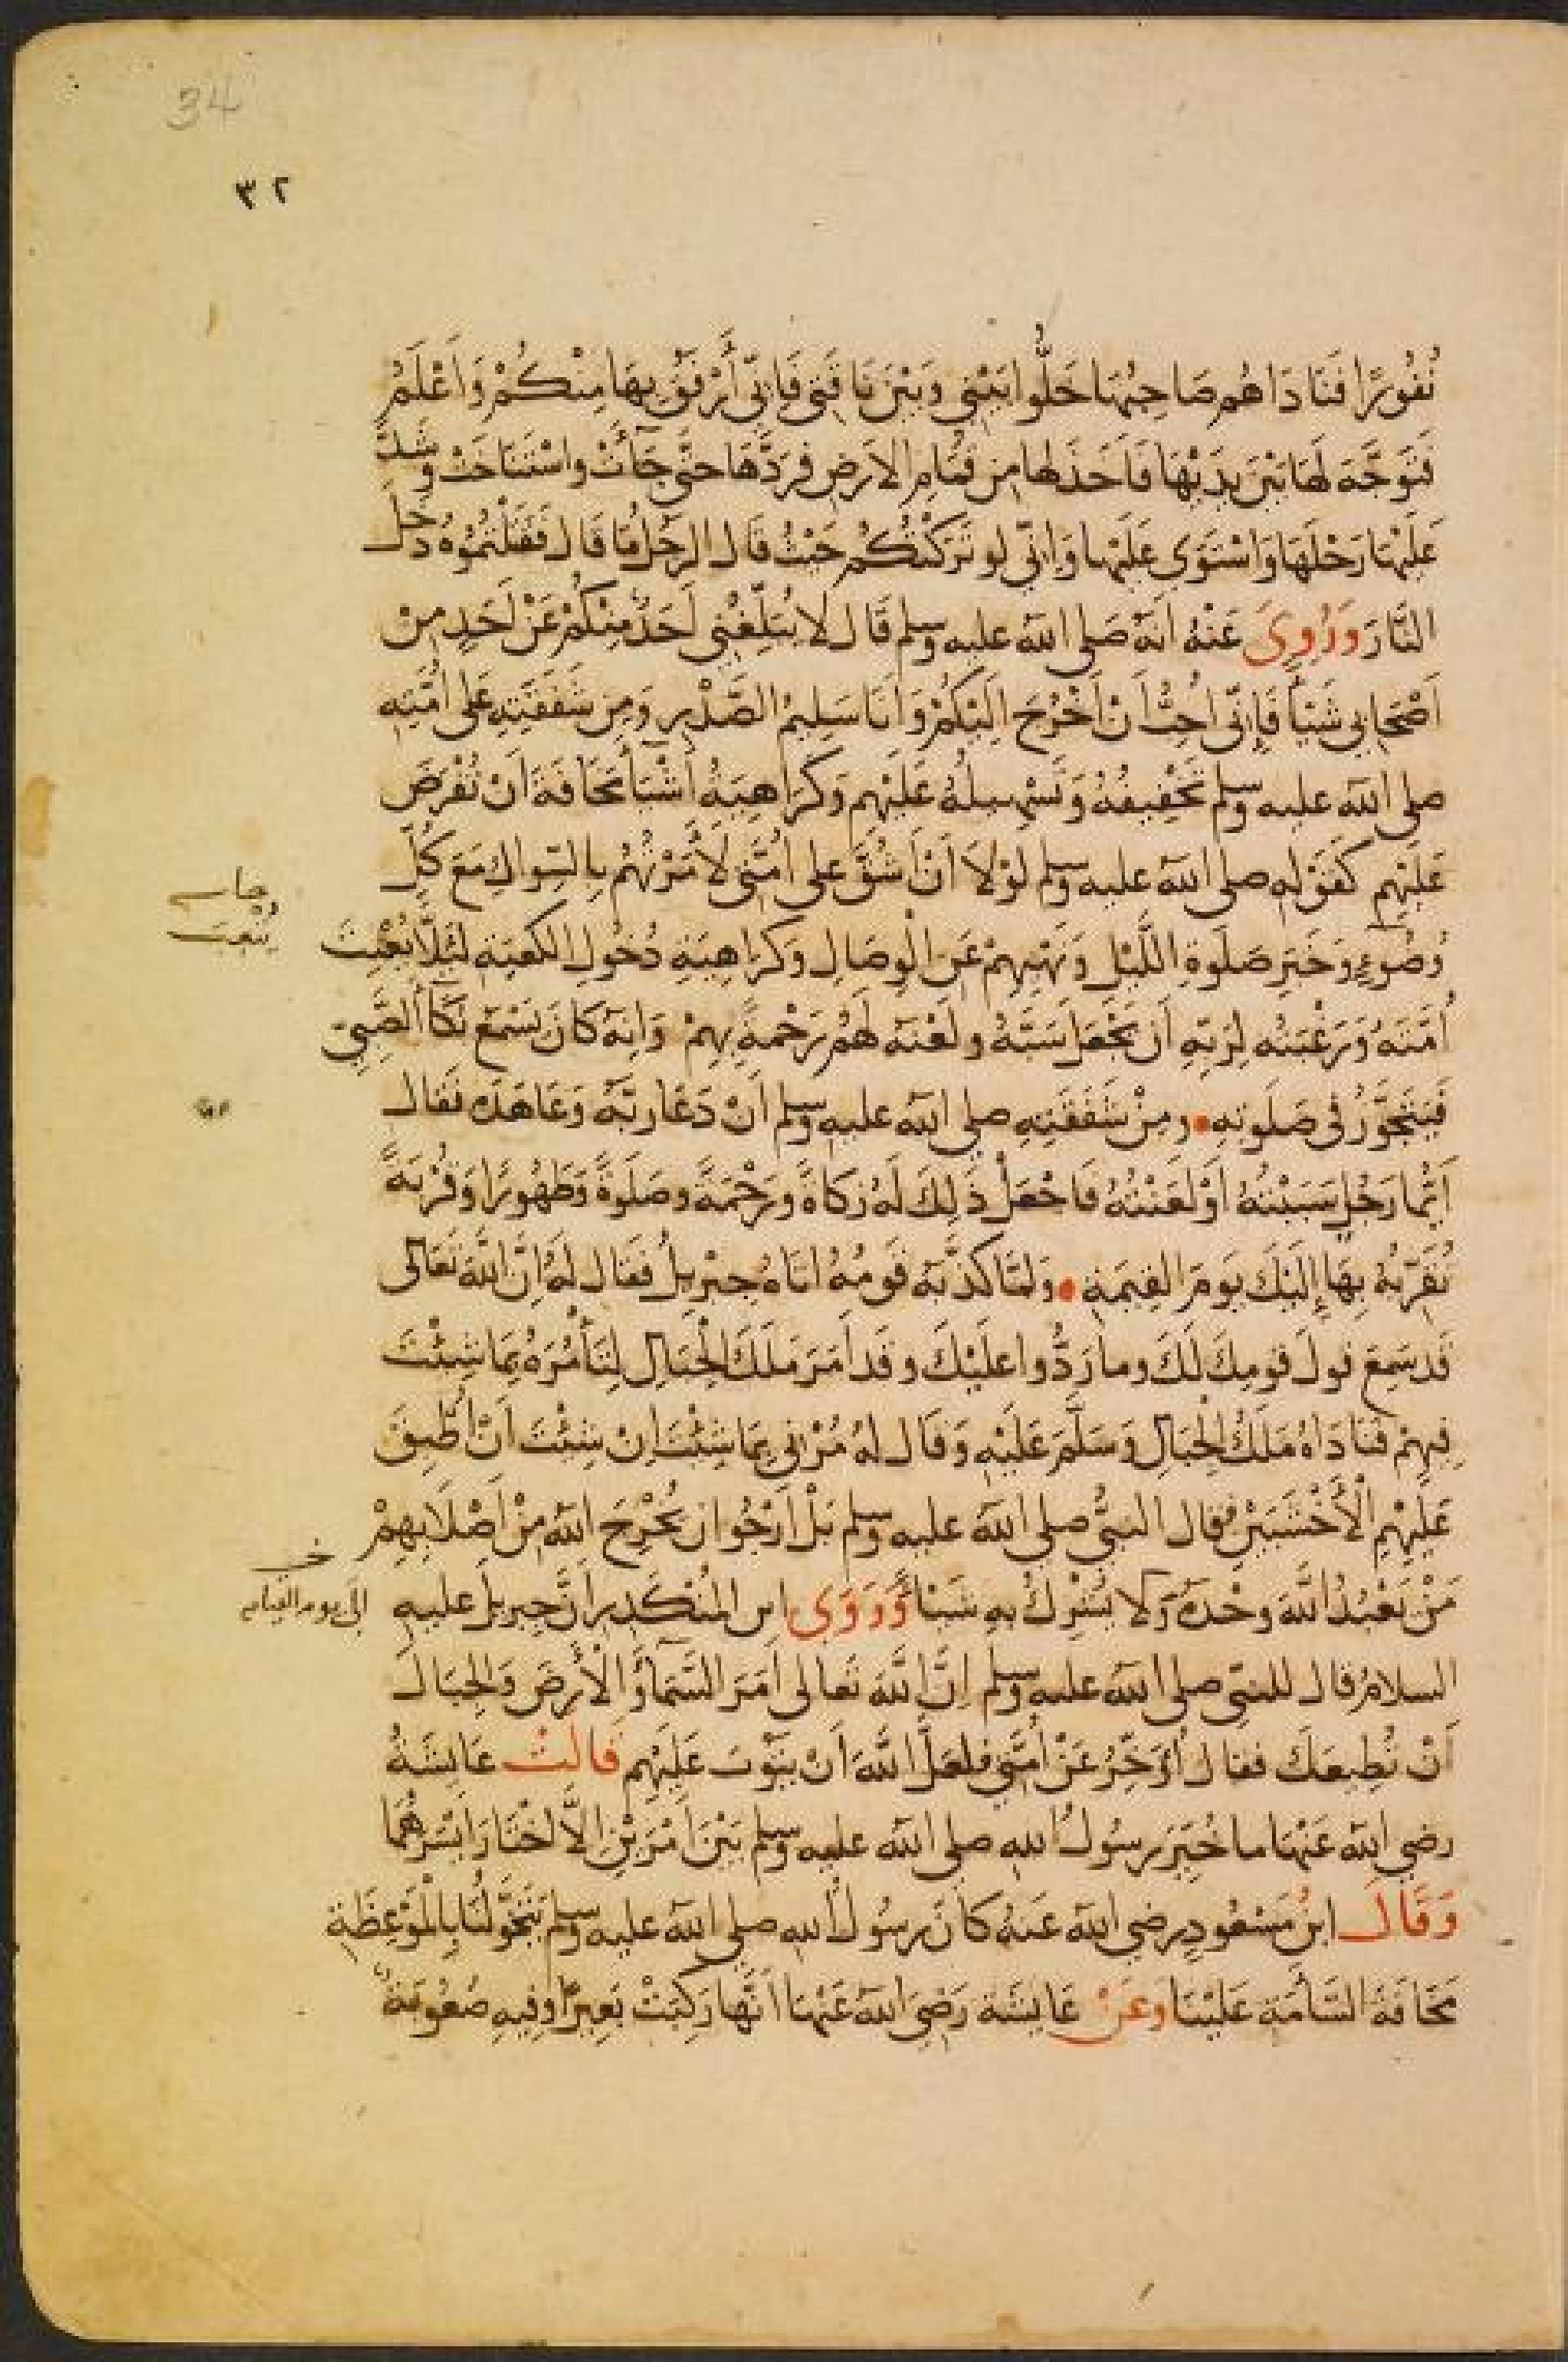 34
٣٢
نُفُورًا فَنَادَاهُم صَاحِبُهَا خَلُّوا بَيْنِي وَبَيْنَ نَاقَتِي فَإِنِّي أَرْفَقُ بِهَا مِنْكُمْ وَأَعْلَمُ
فَتَوَجَّهَ لَهَا بَيْنَ يَدَيْهَا فَأَخَذَ لها مِن قُمَامِ الأرضِ فَرَدَّهَا حتَّى جَآءَتْ واسْتَنَاخَتْ وشَدَّ
عَلَيْهَا رَحْلَهَا وَاسْتَوَى عَلَيْها وَإِنِّي لو تَرَكْتُكُم حَيْثُ قَالَ الرَّجُلُ مَا قَالَ فَقَتَلْتُمُوْهُ دَخَلَ
النَّارَ وَرُوِىَ عَنْهُ انَّه صَلى الله عليه وسلم قَال لا يُبَلِّغْنِي أَحَدٌ مِنْكُمْ عَنْ أَحَدٍ مِنْ
أَصْحَابِي شَيْئاً فَإِنِّي أُحِبُّ أَنْ أَخْرُجَ إِلَيْكُمْ وَأَنَا سَلِيمُ الصَّدْرِ وَمِن شَفَقَتِهِ عَلى أُمَّتِه
صلى الله عليه وسلم تَخْفِيفُهُ وَتَسْهِيلُهُ عَلَيْهِم وَكَرَاهِيَةُ أَشْيَآءَ مَخَافَةَ أَنْ تُفْرَضَ
عَلَيْهِم كَقَوْلِهِ صلى الله عليه وسلم لَوْلَا أَنْ أَشُقَّ على أُمَّتِي لأَمَرْتُهُمْ بِالسِّواكِ مَعَ كُلِّ
وُضُوءٍ وَخَبَرِ صَلَوةِ اللَّيْلِ وَنَهْيِهِمْ عَنِ الْوِصَالِ وَكَرَاهِيَةِ دُخُولِ الكَعْبَةِ لِئَلَّا يُعْنِتَ
يُتْعِبَ
أُمَّتَهُ وَرَغْبَتُه لِرَبِّهِ أَن يَجْعَلَ سَبَّهُ ولَعْنَه لَهُمْ رَحْمَةً بِهِمْ وَانّه كَانَ يَسْمَع بُكَآءَ الصَّبِيّ
فَيَتَجَوَّزُ فى صَلَوتِهِ • ومِنْ شَفَقَتِهِ صلى الله عليه وسلم أَنْ دَعَا رَبَّهُ وَعَاهَدَه فَقالَ
أَيُّمَا رَجُلٍ سَبَبْتُهُ أَوْ لَعَنْتُهُ فَاجْعَلْ ذَلِكَ لَهُ زَكَاةً ورَحْمَةً وصَلَوةً وَطَهُورًا وَقُرْبَةً
تُقَرِّبُهُ بِهَا إِلَيْكَ يَومَ القِيَمَةِ • وَلَمَّا كَذَّبَهُ قَومُهُ أتَاهُ جِبْرِيلُ فقَال لَهُ إِنَّ اللهَ تَعَالى
قَد سَمِعَ قولَ قومِكَ لَكَ وما رَدُّوا عليْكَ وقَد أَمَرَ مَلَكَ الْجِبَالِ لِتَأْمُرَهُ بِمَا شِئْتَ
فِيهِمْ فَنَادَاهُ مَلَكُ الْجِبَالِ وَسَلَّمَ عَلَيْهِ وَقَال لهُ مُرْنِي بِمَا شِئْتَ إِنْ شِئْتَ أَنْ أُطْبِقَ
عَلَيْهِمِ الْأَخْشَبَيْنِ فقال النبيُّ صلى الله عليه وسلم بَلْ أَرْجُوا أن يُخْرِجَ الله مِنْ أَصْلَابِهِمْ
مَنْ يَعْبُدُ اللهَ وحْدَهُ وَلَا يُشْرِكُ بِهِ شَيْئاً وَرَوَى ابن المُنْكَدِرِ أَنَّ جِبريلَ عليه
إلَى يوم القيامه
السلامُ قال للنبيّ صلى الله عليه وسلم إِنَّ اللهَ تَعالى أَمَرَ السَّمَآءَ وَالْأَرْضَ وَالجِبَالَ
أَنْ تُطِيعَكَ فقال أُؤَخِّرُ عَنْ أُمَّتِي فلعَلَّ اللهَ أَنْ يَتُوبَ عَلَيْهِم قَالَتْ عَايِشَةُ
رضي الله عَنْها ما خُيِّرَ رسُولُ اللهِ صلى الله عليه وسلم بَيْنَ أَمْرَيْنِ إِلاَّ اخْتَارَ أَيْسَرَهُمَا
وَقَالَ ابنُ مَسْعُودٍ رضي الله عَنهُ كَانَ رسُولُ الله صلى الله عليه وسلم يَتَخَوَّلُنَا بِالْمَوْعِظَةِ
مَخَافَةَ السَّأْمَةِ عَلَيْنَا وعَنْ عَايِشَةَ رَضِىَ اللهُ عَنْهَا أَنَّها رَكِبَتْ بَعِيرًا وفِيهِ صُعُوبَةٌ